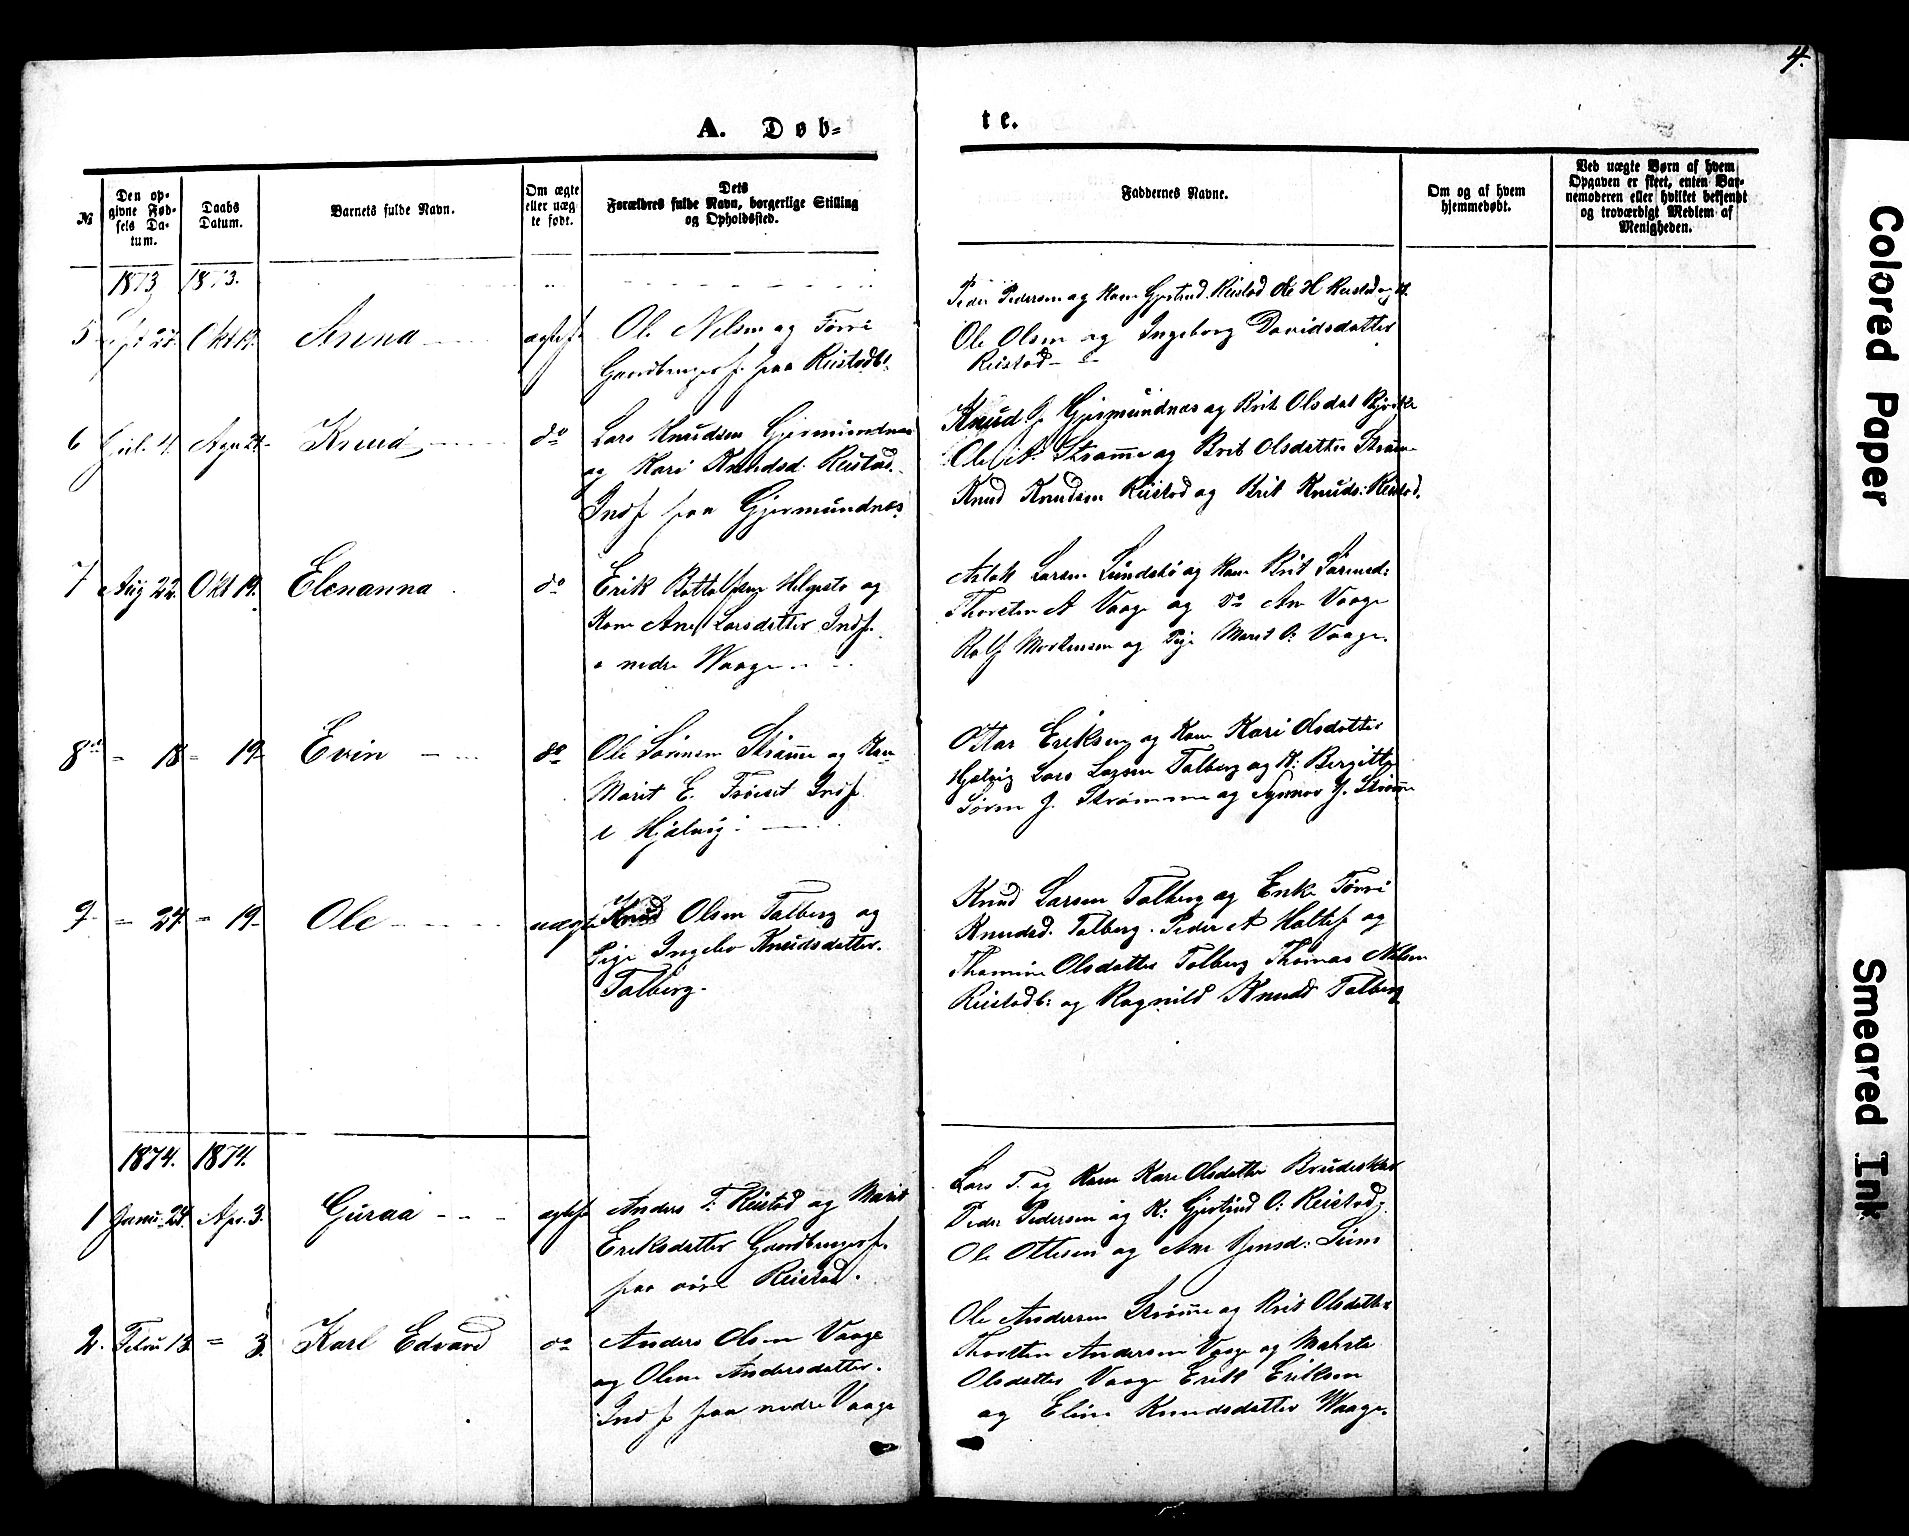 4.
A. Døb-
te.
№
Den op-
givne Fød-
sels Da-
tum.
Daabs
Datum.
Barnets fulde Navn.
Om ægte
eller uæg-
te født.
Dets
Forældres fulde Navn, borgerlige Stilling
og Opholdssted.
Faddernes Navne.
Om og af hvem
hjemmedøbt.
Ved uægte Børn af hvem
Opgaven er skeet, enten Bar-
nemoderen eller hvilket bekjendt
og troværdigt Medlem af
Menigheden.
1873 1873.
5 Okt 19.
Ole Nelsen og Torri
Gaardbrugerf. paa Reistadb:
Peder Pedersen og Kone Gjertrud Reistad
Ole Olsen og Ingeborg Davidsdatter
Reistad
6 Juli 4. Agu 24 Knud do
Lars Knudsen Gjermundnes
og Kari Knudsd: Reistad.
Indf paa Gjermundnes
Knud Gjermundnes og Brit Olsdat
Ole Strømme og Brit Olsdatter Strøm
Knud Knudsen Reistad og Brit Knuds: Reistad.
7 Aug 22. Okt 19. Elenanna do
Erik Bottolfsen Helgesto og
Kone Ane Larsdatter Indf.
nedre Waage
Aslak Larsen Lundsbø og Kone Brit
Thorsten A Vaage og do An Vaage
Rolf Mortensen og Pige Marit O: Vaage.
8 = 18 = 19 Evin do
Ole Sørensen Strømme og Kone
Marit E. Frøiset Indf
i Hjelvig
Ottar Eriksen og Kone Kari Olsdatter
Hjelvig Lars Larsen Talberg og K: Bergitte
Søren J. Strømme og Synnov J. Strømme
9 = 24 = 19 Ole uægte
Knud Olsen Talberg og
Pige Ingebor Knudsdatter.
Talberg.
Knud Larsen Talberg og Enke Torri
Knudsd. Talberg. Peder A og
Thomine Olsdatter Talberg Thomas Nelsen
Reistadb: og Ragnild Knuds Talberg
1874. 1874.
1 Janu. 24. Apr. 3. Guraa
Anders T. Reistad og Marit
Eriksdatter Gaardbrugerf.
paa øvre Reistad.
Lars T. og Kone Kari Olsdatter Brudeskar
Peder Pedersen og K: Gjertrud O: Reistad
Ole Ottesen og Ane Jensd:
2. Febru 13. = 3. Karl Edvard do
Anders Olsen Vaage
og Olene Andersdatter.
Indf paa nedre Vaage
Ole Andersen Strømme og Brit Olsdatter
Thorsten Andersen Vaage og Mahrta
Olsdatter Vaage Erik Eriksen
og Eline Knudsdatter Waage.
Colored Paper
Smeared Ink